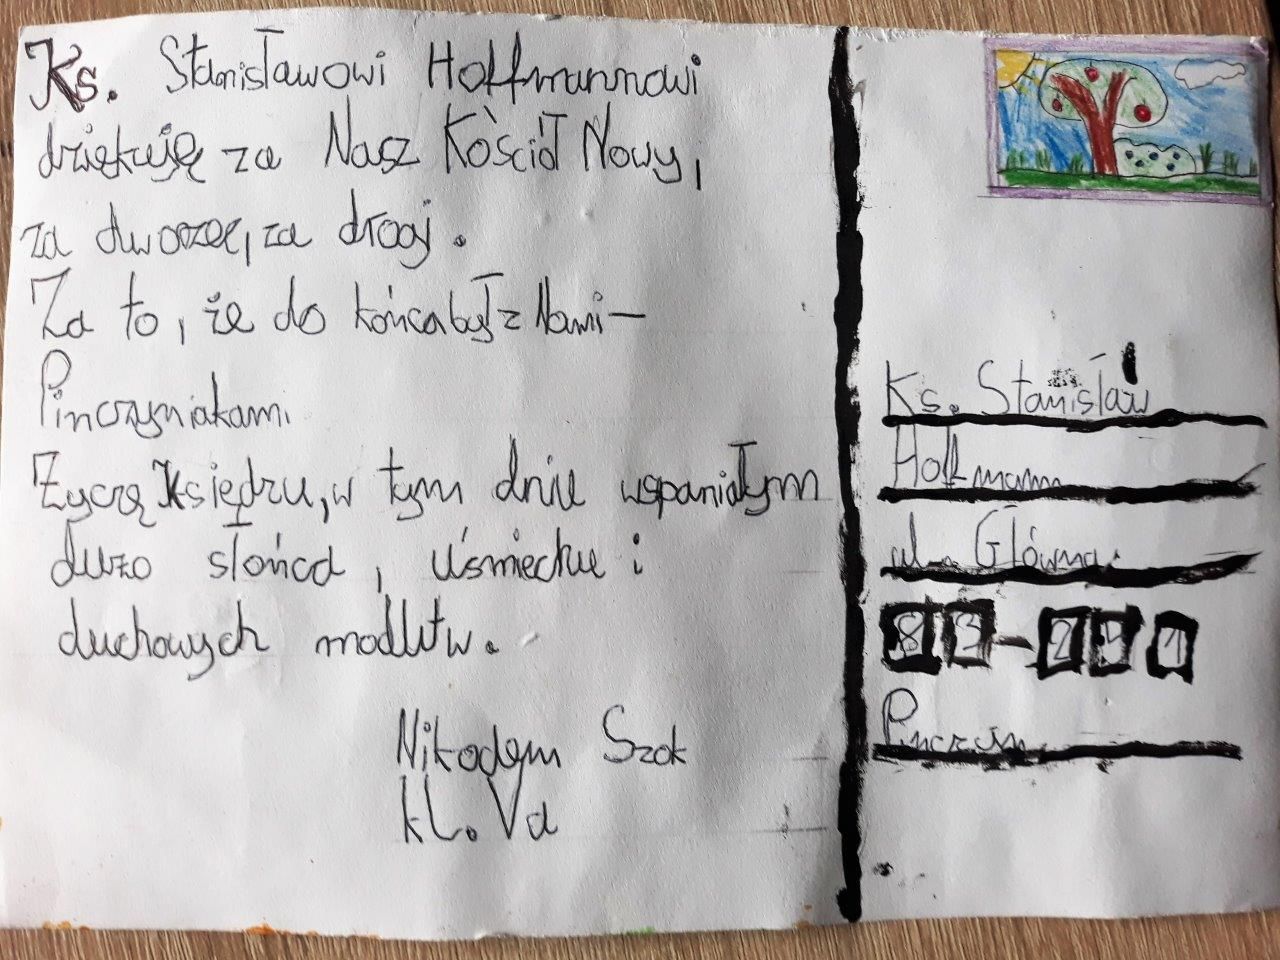 Ks. Stanisławowi Hoffmannowi
dziękuję za Nasz Kościół Nowy,
za dworzec, za drogi.
Za to, że do końca był z Nami-
Pinczyniakami.
Życzę Księdzu, w tym dniu wspaniałym
dużo słońca, uśmiechu i
duchowych modlitw.
Nikodem Szok
kl. Va
Ks. Stanisław
Hoffmann
ul. Główna
83-251
Pinczyn